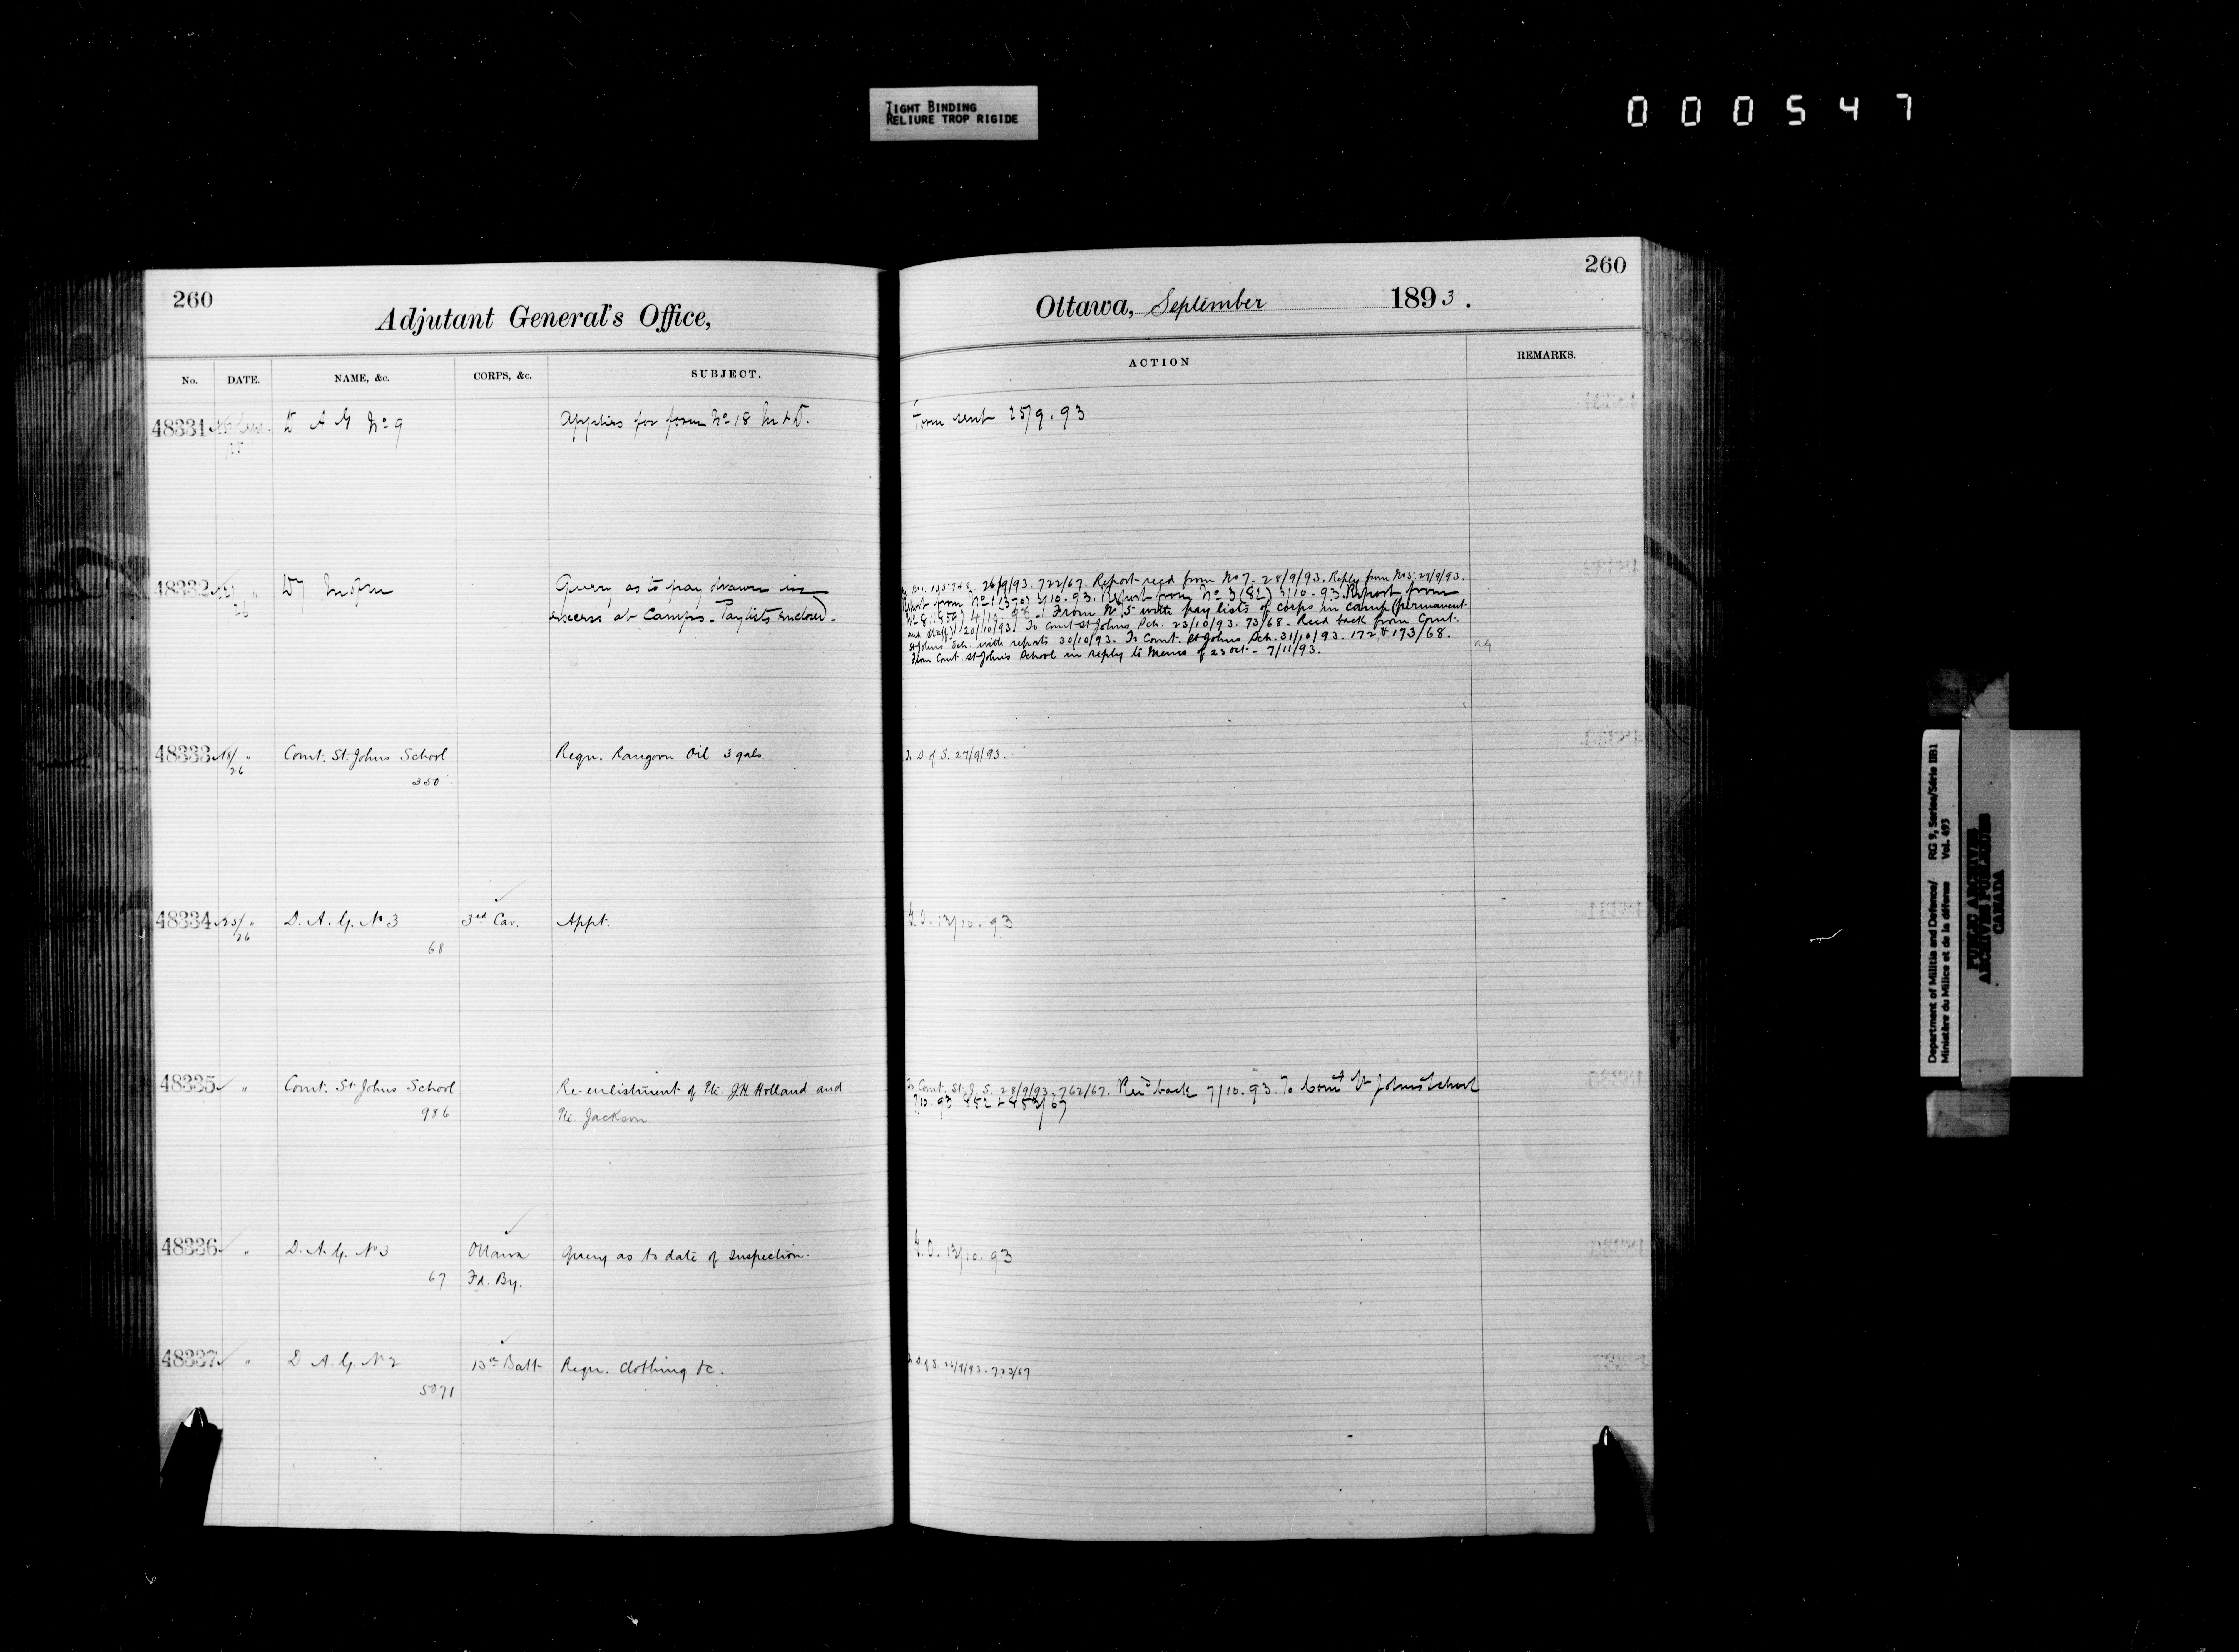 TIGHT BINDING
RELIURE TROP RIGIDE
000547
260
Adjutant General's Office,
No. DATE. NAME, &c. CORPS, &c. SUBJECT.
48331 D A G No 9 Applies for form No 18 M & D.
48332 Dy Min Query as to pay drawn in
26 excess at Camps. Paylists enclosed.
48333 18/ " Comt. St. Johns School Reqn. Rangoon Oil 3 gals.
26 350
48334 25/ " D. A. G. No 3 3rd Cav. Appt.
26 68
48335 " Comt. St. Johns School Re-enlistment of Pte. J.H. Holland and
986 Pte. Jackson
48336 " D. A. G. No 3 Ottawa Query as to date of Inspection.
67 Fd. By.
48337 " D A. G. No 2 13th Batt Reqn. Clothing &c.
5071
260
Ottawa, September 1893.
ACTION REMARKS.
Form sent 25/9.93
26/9/93. 722/67. Report recd from No 7. 28/9/93. Reply from No 5. 29/9/93.
Report from No 1 (370) 3/10.93. Report from No 3 (82) 3/10.93. Report from
From No 5 with pay lists of corps in camp (permanent
and Staff) 20/10/93. To Comt St Johns Sch. 23/10/93. 73/68. Recd back from Comt.
St Johns Sch. with reports 30/10/93. To Comt. St Johns Sch. 31/10/93. 172 & 173/68.
From Comt. St Johns School in reply to Memo of 23 Oct - 7/11/93.
To D. of S. 27/9/93.
G.O. 13/10.93
To Comt. St. J. S. 28/9/93. 762/67. Recd back 7/10.93. To Comt St Johns School
7/10.93 452 & 453/67
G.O. 13/10.93
To D. of S. 26/9/93. 723/67
Department of Militia and Defence/ RG 9, Series/Série IIB1
Ministère du Milice et de la défense Vol. 493
PUBLIC ARCHIVES
ARCHIVES PUBLIQUES
CANADA